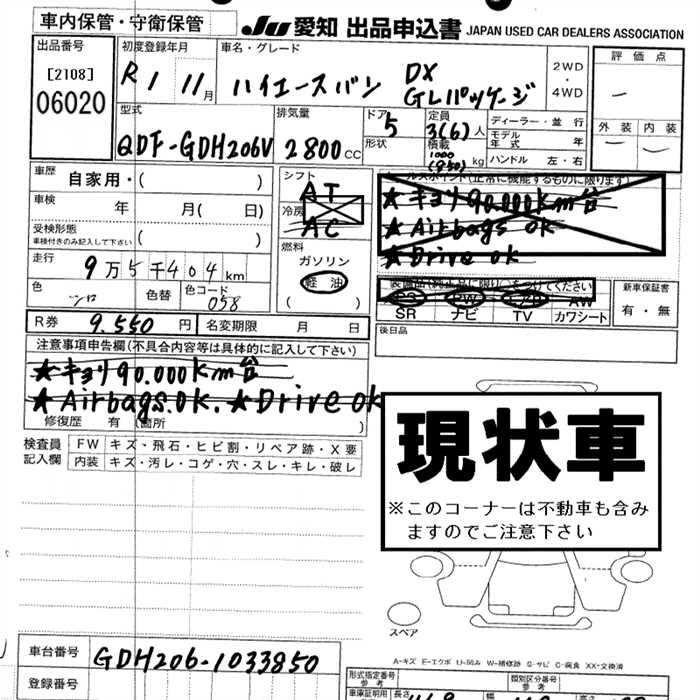 車内保管・守衛保管
JU 愛知 出品申込書 JAPAN USED CAR DEALERS ASSOCIATION
出品番号
[2108]
06020
初度登録年月
R 1 11月
車名・グレード
ハイエースバン DX
GLパッケージ
2WD
・
4WD
評価点
外装 内装
型式
QDF-GDH206V
排気量
2800cc
ドア
5
形状
定員
3(6)人
積載
1000
(950) kg
ディーラー・並行
モデル
年式 年
ハンドル 左・右
車歴
自家用・( )
車検
年 月( 日)
受検形態
車検付きのみ記入して下さい ( )
走行
9万5千404km
色
シロ
色替
色コード
058
シフト
AT
冷房
AC
燃料
ガソリン
軽油
( )
セールスポイント(正常に機能するものに限ります)
★キョリ90.000km台
★Airbags ok
★Drive ok
装備品(純正品に限り○をつけてください)
PS PW エアB AW
SR ナビ TV カワシート
新車保証書
有・無
後日品
R券 9.550円
名変期限 月 日
注意事項申告欄(不具合内容等は具体的に記入して下さい)
★キョリ90.000km台
★Airbags.ok. ★Drive ok
修復歴 有(箇所 )
検査員
記入欄
FW キズ・飛石・ヒビ割・リペア跡・X要
内装 キズ・汚レ・コゲ・穴・スレ・キレ・破レ
現状車
※このコーナーは不動車も含み
ますのでご注意下さい
スペア
A-キズ E-エクボ U-凹み W-補修跡 S-サビ C-腐食 XX-交換済
車台番号 GDH206-1033850
登録番号
形式指定番号
参考
類別区分番号
参考
車庫証明用
参考
長さ
幅